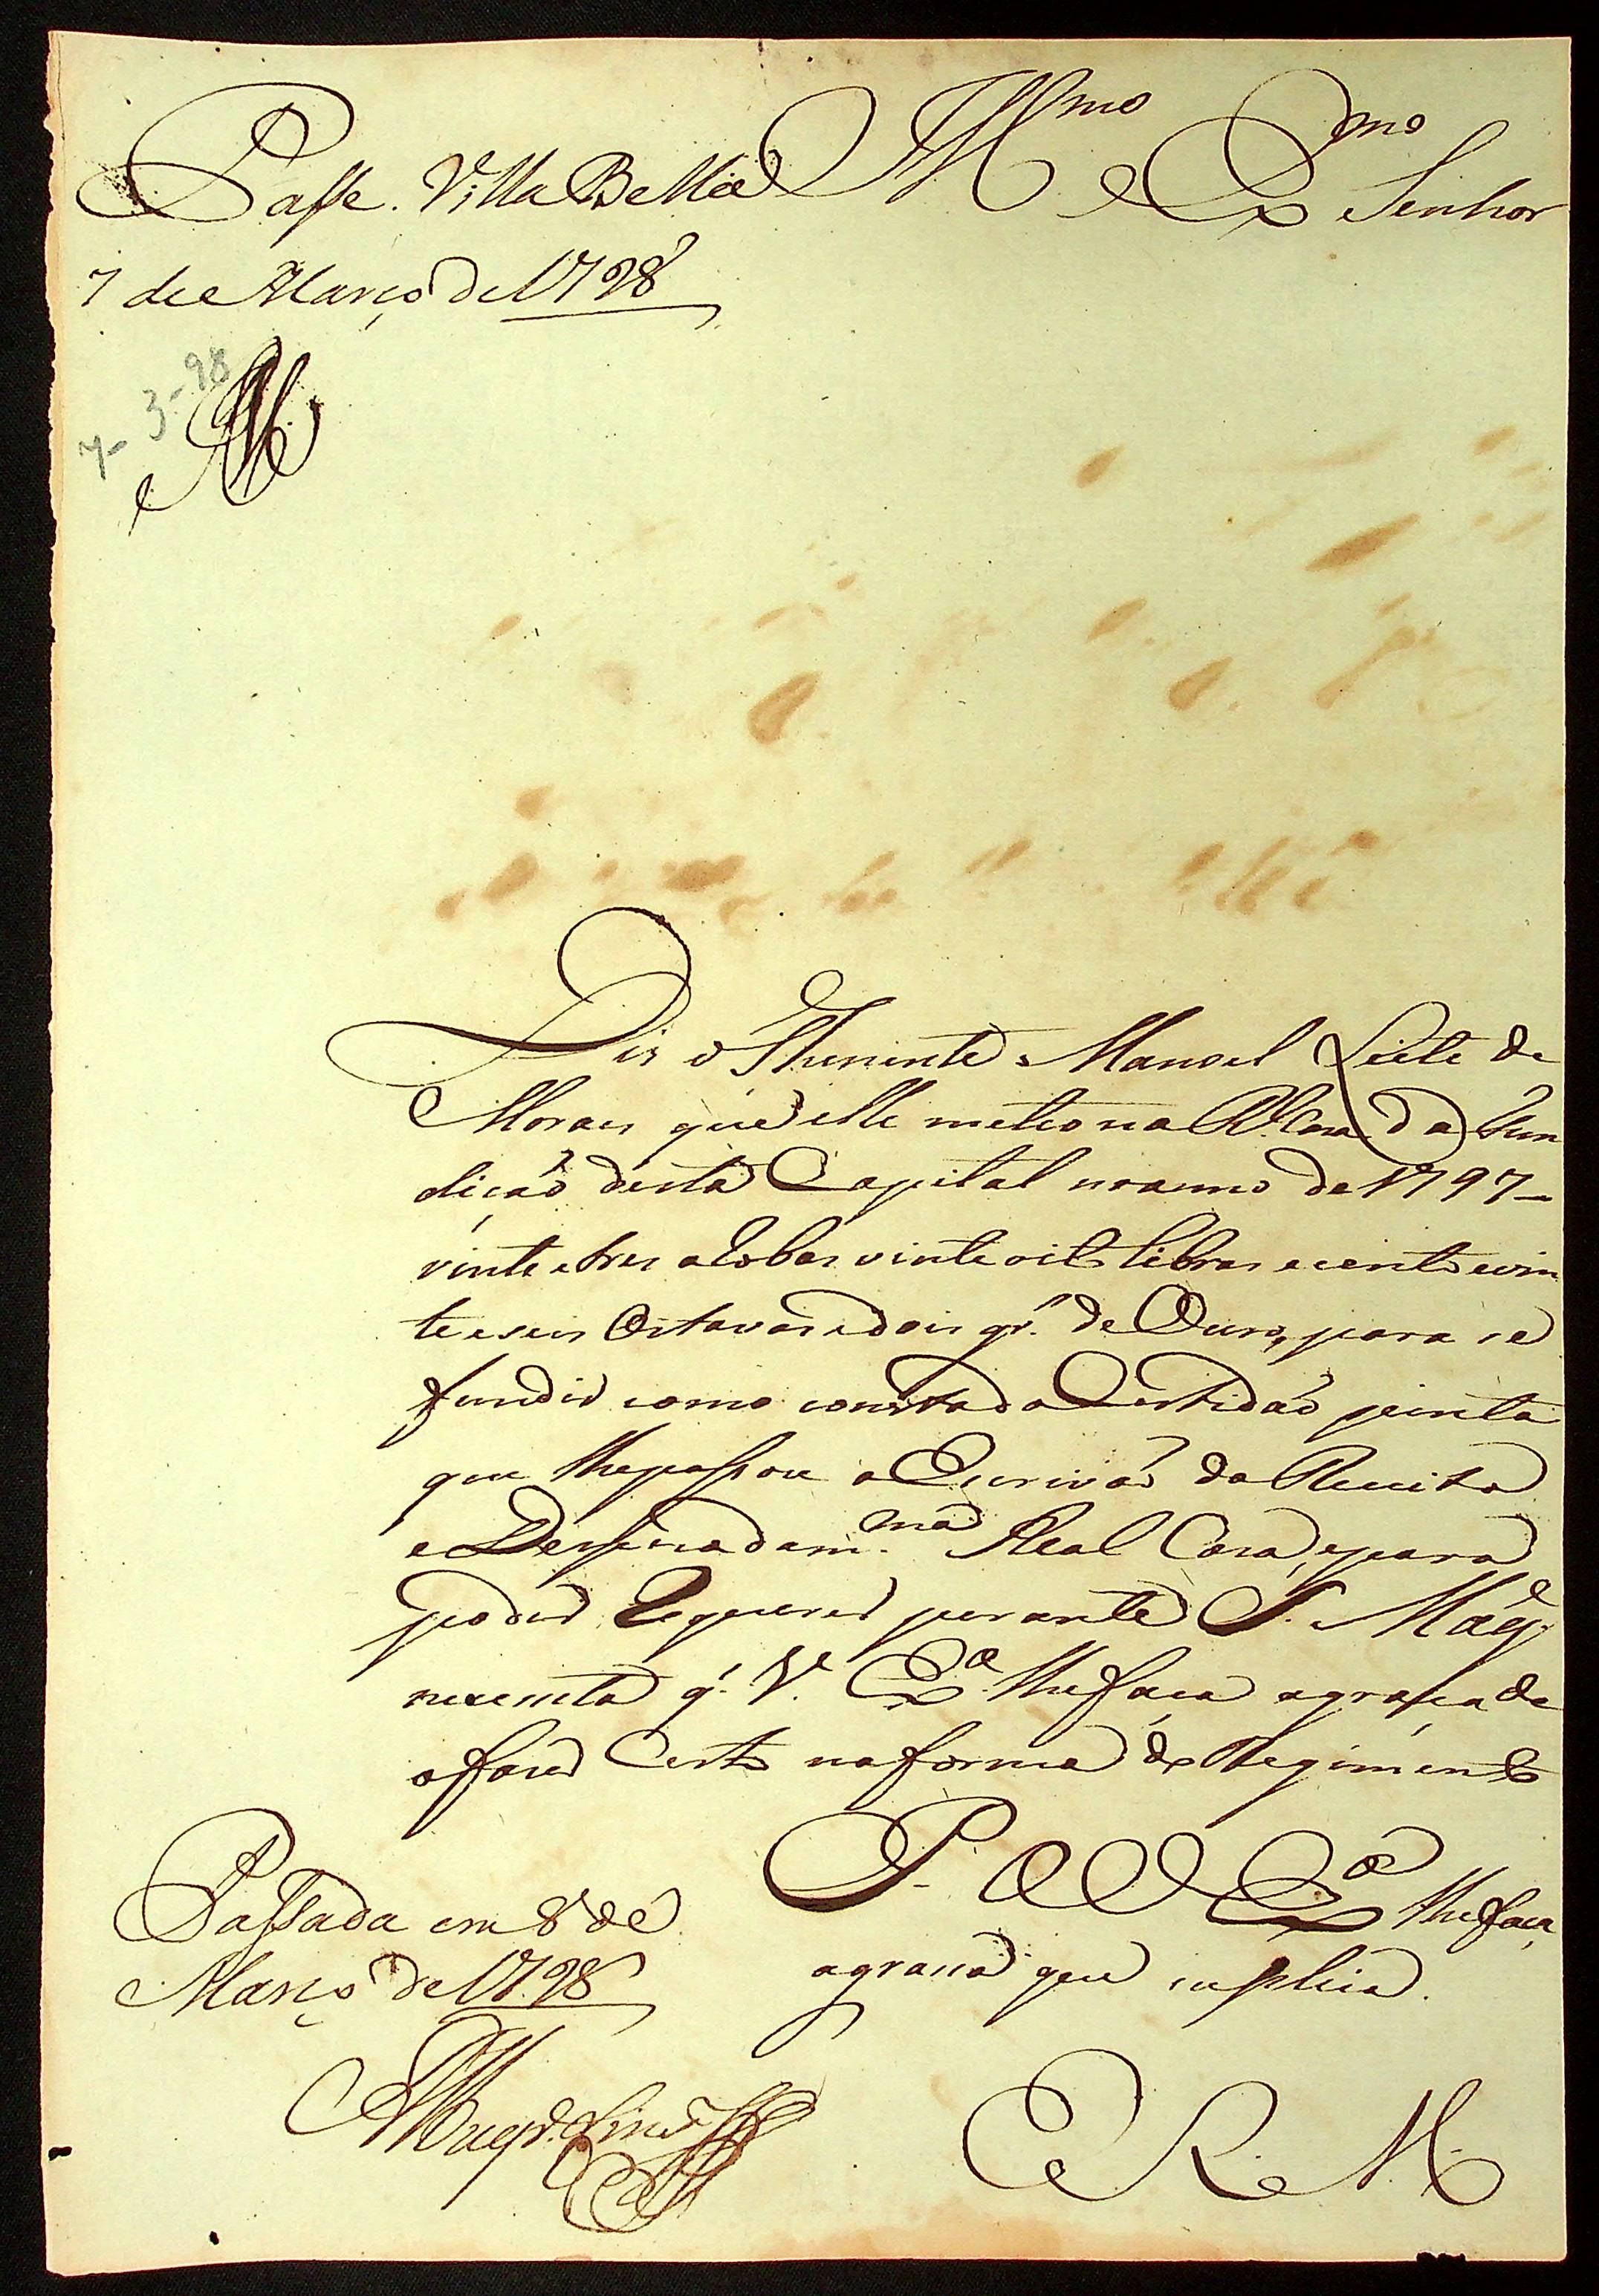 Passe. Villa Bella
7 de Março de 1798
7-3-98
Illmo e Exmo Senhor
Dis o Thenente Manoel Leite de
Moraes que elle meteo na Rl. Caza da Fun
dição desta Capital no anno de 1797
vinte e tres arobas vinte oito libras e cento e vin
te e seis Oitavas e dois gr.s de Ouro, para se
fundir como consta da Certidão junta
que lhe passou o Escrivão da Receita
e Despeza da m.ma Real Caza, e para
poder Requerer perante S. Mag.e
necessita q. V. Ex.a lhe faça a graça de
o fazer Certo na forma do Regimento
P. a V Ex.a lhe faça
a graça que suplica.
E R. M.
Passada em 8 de
Março de 1798